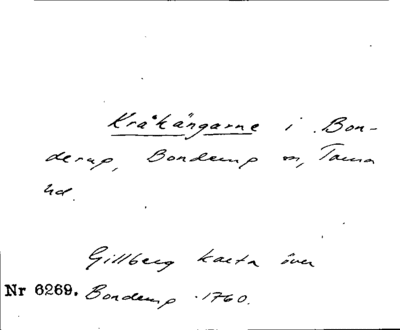 Kråkängarne i Bon-
derup, Bonderup sn, Torna
hd.
Gillberg karta över
Nr 6269. Bonderup 1760.